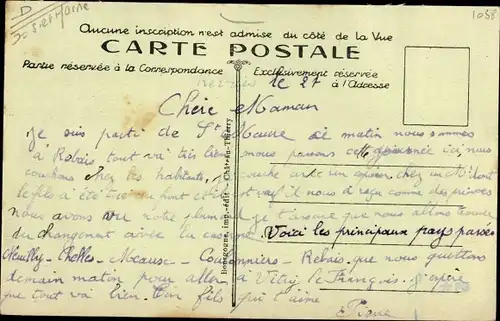 D
Seine Marne
1058
Aucune inscription n'est admise du côté de la Vue
CARTE POSTALE
Partie réservée à la Correspondance
Exclusivement réservée à l'Adresse
le 27
Chère Maman
Je suis parti de St Maure ce matin nous sommes
à Rebais, tout va très bien nous passons cette journée ici, nous
couchons chez les habitants, je couche avec un copain chez un
le fils a été nous a reçu comme des princes
nous avons vu notre je que nous allons trouver
du changement avec la caserne. Voici les principaux pays passés
Neuilly - Chelles - Meaux - Coulommiers - Rebais que nous quittons
demain matin pour aller à Vitry le François. j'espère
que tout va bien. Ton fils qui t'aime
Pierre
Bourgogne, imp.-édit. Chât.-Thierry